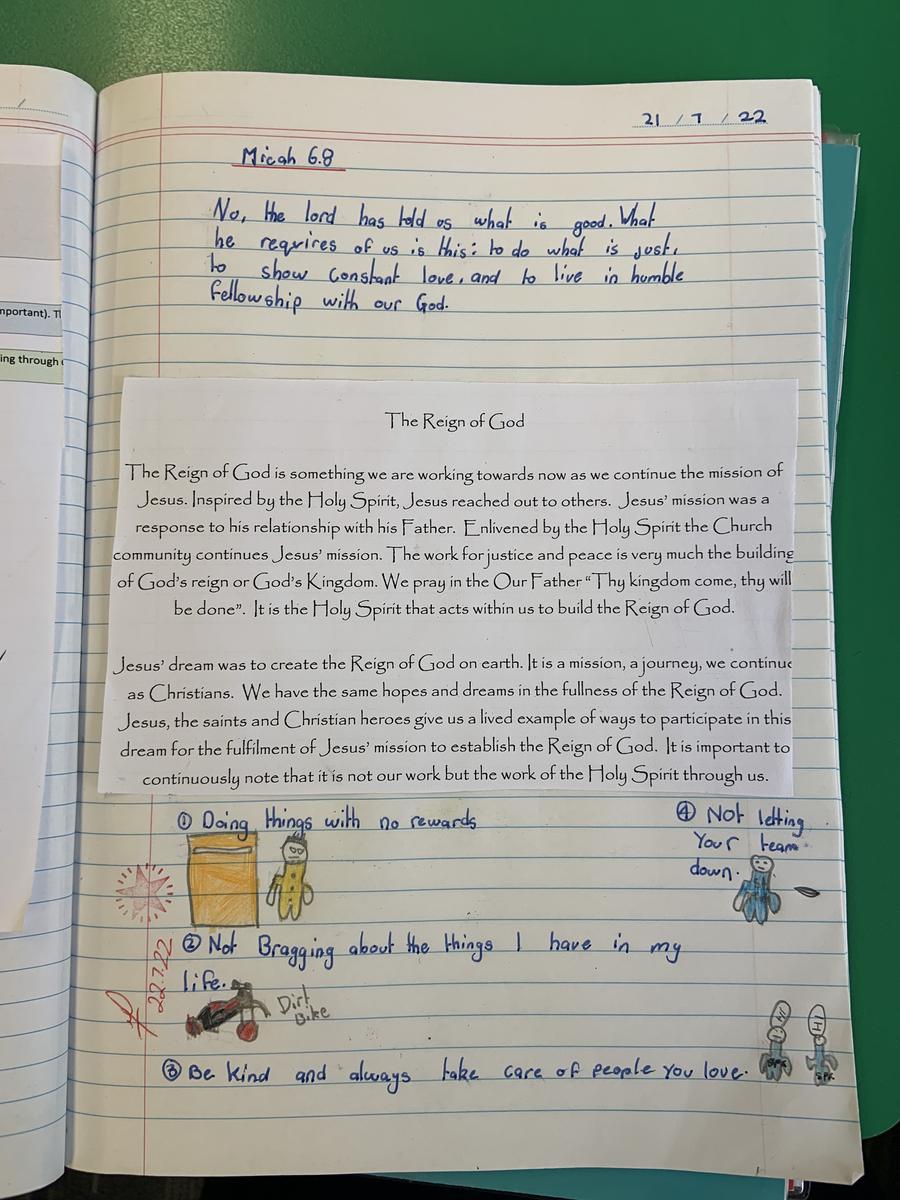 21 / 7 / 22
Micah 6.8
No, the lord has told us what is good. What
he requires of us is this: to do what is just,
to show constant love, and to live in humble
fellowship with our God.
The Reign of God
The Reign of God is something we are working towards now as we continue the mission of
Jesus. Inspired by the Holy Spirit, Jesus reached out to others. Jesus' mission was a
response to his relationship with his Father. Enlivened by the Holy Spirit the Church
community continues Jesus' mission. The work for justice and peace is very much the building
of God's reign or God's Kingdom. We pray in the Our Father "Thy kingdom come, thy will
be done". It is the Holy Spirit that acts within us to build the Reign of God.
Jesus' dream was to create the Reign of God on earth. It is a mission, a journey, we continue
as Christians. We have the same hopes and dreams in the fullness of the Reign of God.
Jesus, the saints and Christian heroes give us a lived example of ways to participate in this
dream for the fulfilment of Jesus' mission to establish the Reign of God. It is important to
continuously note that it is not our work but the work of the Holy Spirit through us.
① Doing things with no rewards
④ Not letting
Your team
down.
② Not Bragging about the things I have in my
life.
Dirt
Bike
③ Be kind and always take care of people you love.
22.7.22
mportant). Tl
ing through
Hi
SPK